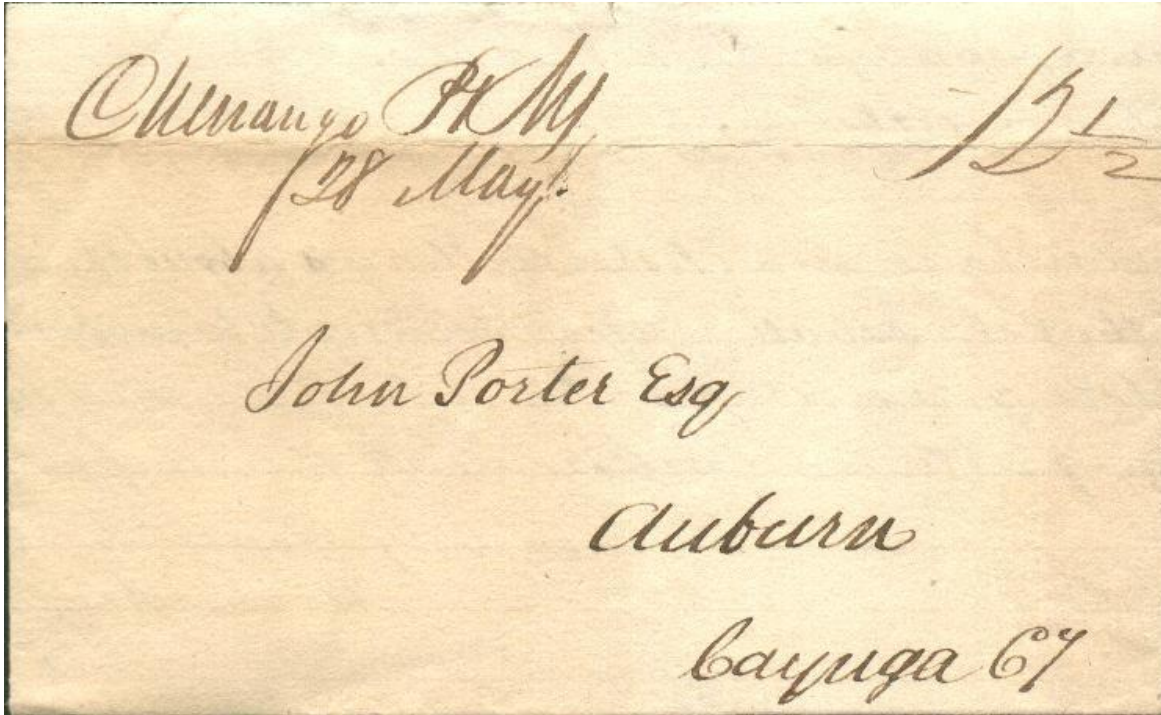 Chenango Pt NY 12 1/2
28 May.
John Porter Esq
Auburn
Cayuga Cy